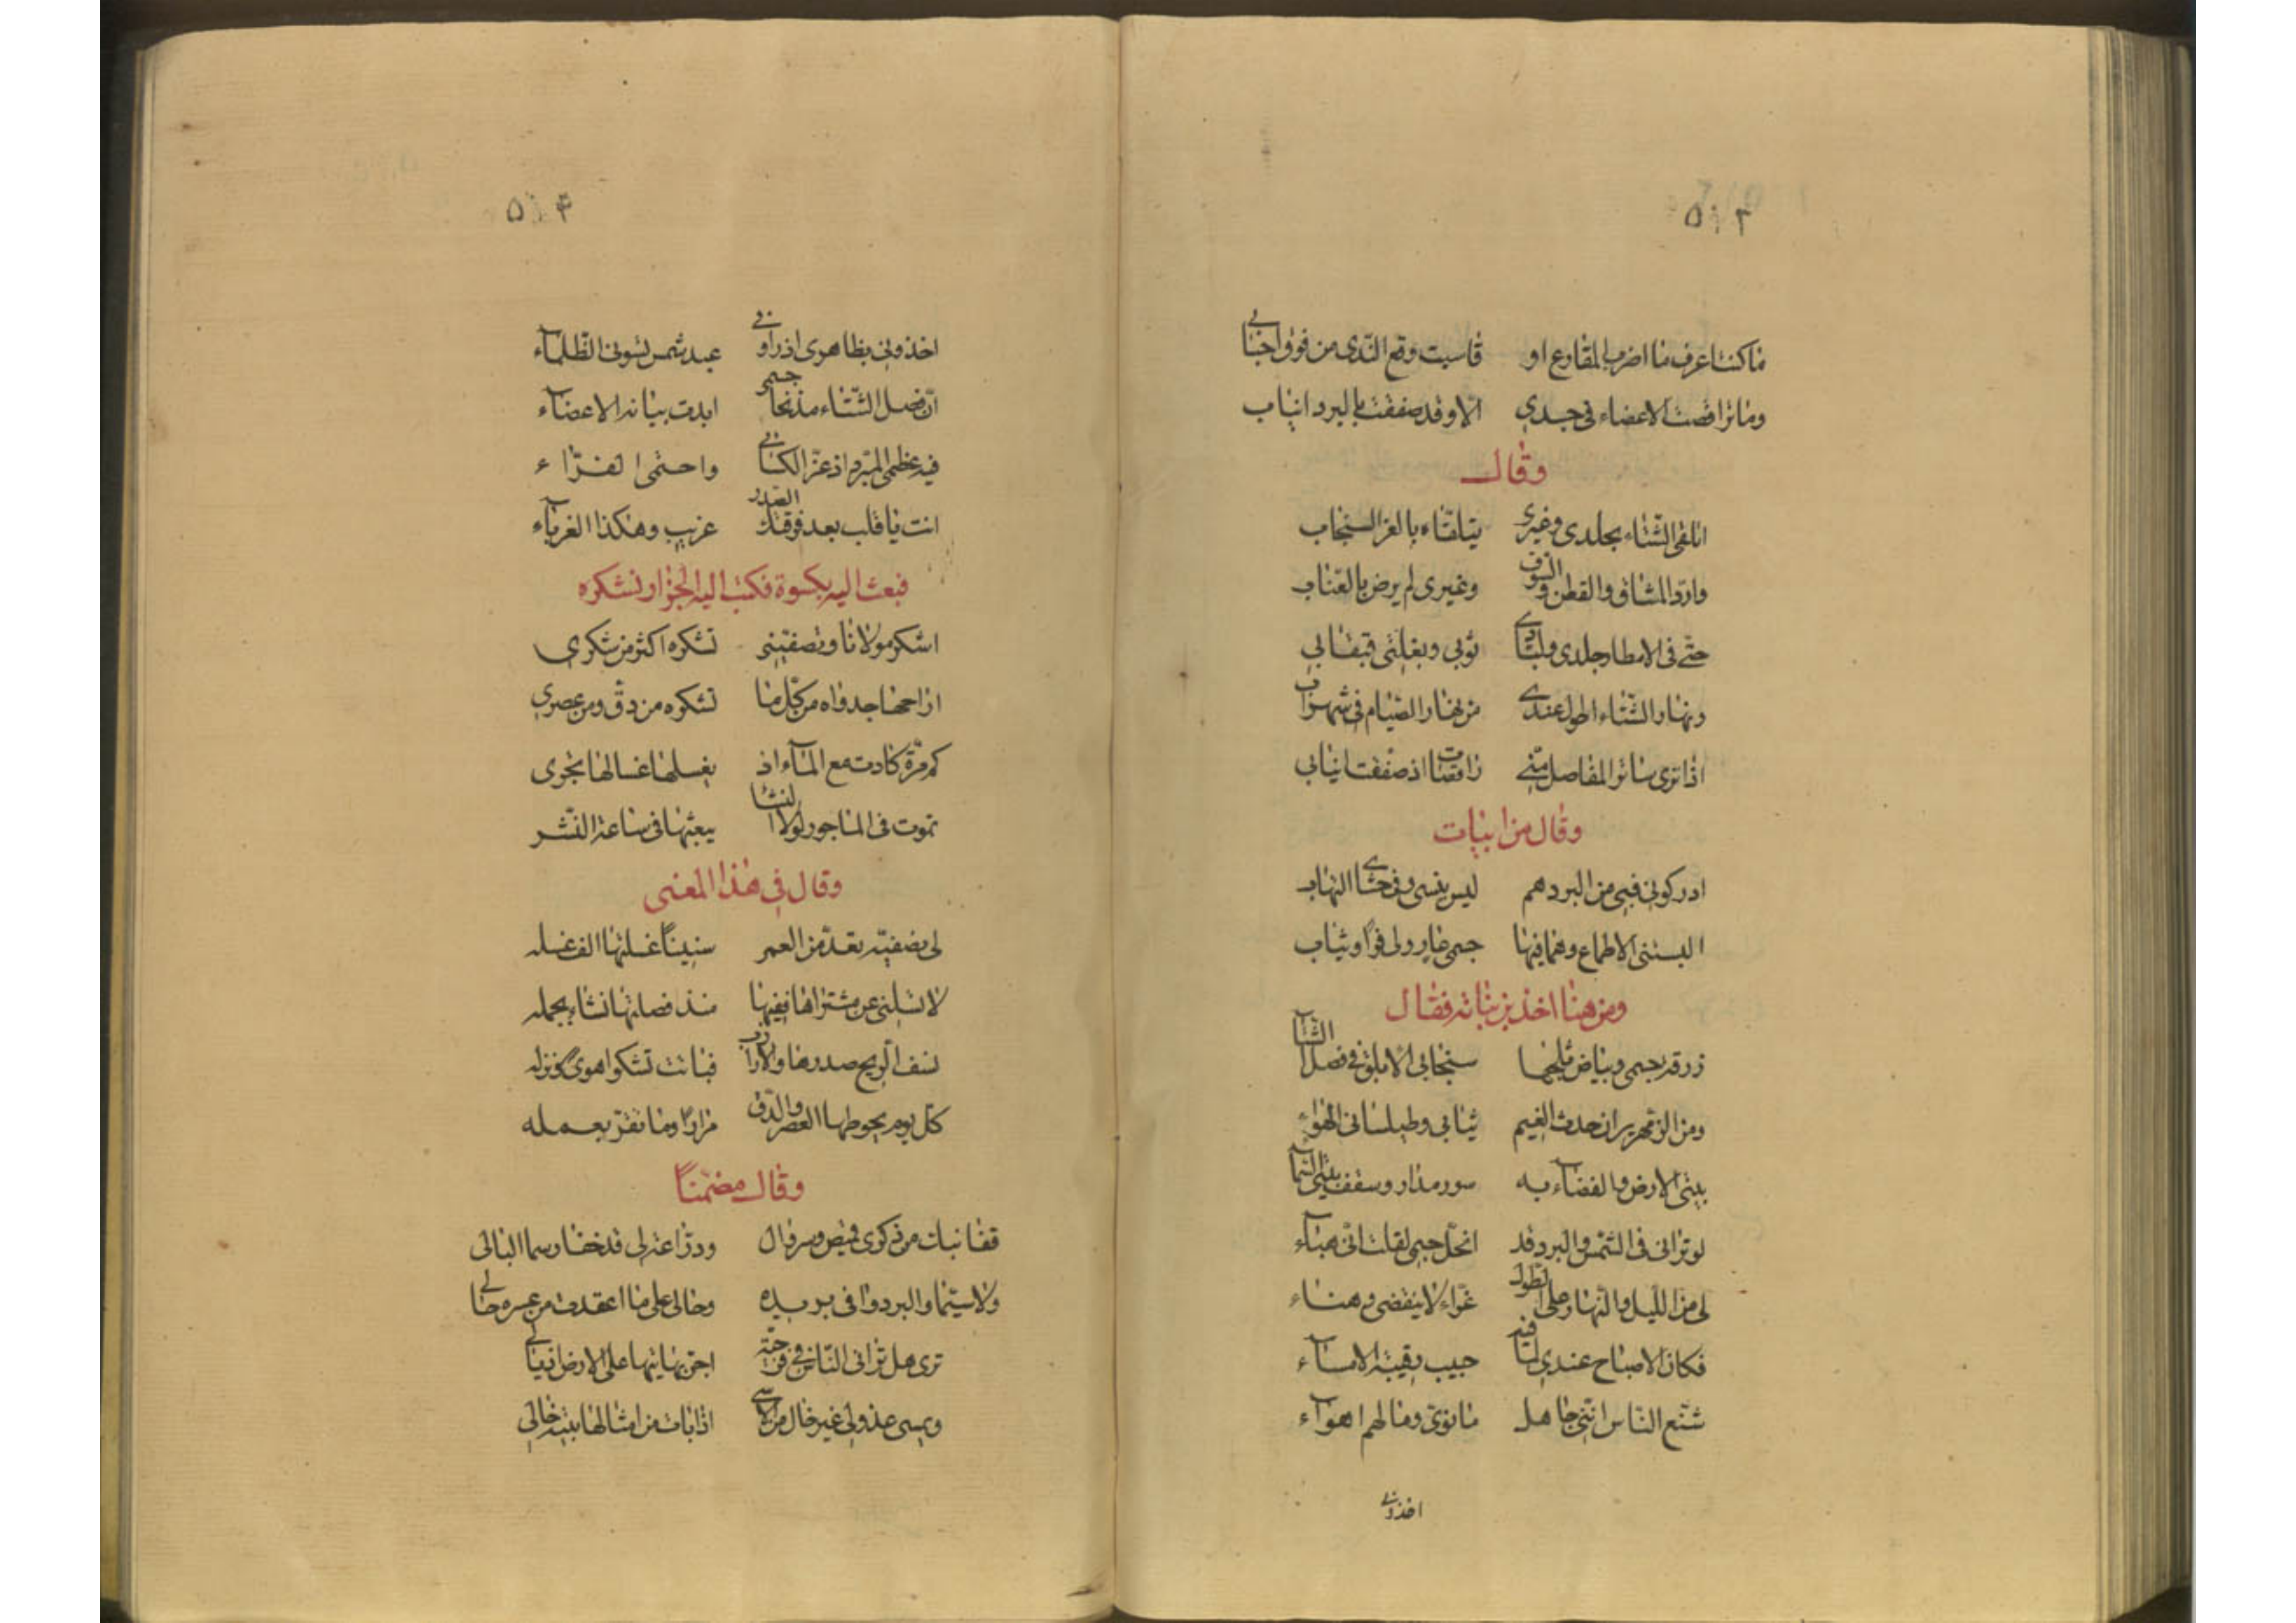 ٥٠٢
ما كنت اعرف ما اضرب المقارع او قاسيت وقع الندى من فوق اجنابي
وما تراقصت الاعضاء في جسدي الا وقد صفقت بالبرد انياب
وقال
اتلقى الشتاء بجلدى وغيرى يتلقاه بالفرا السنجاب
وارد المشاق والقطن والصوف وغيرى لم يرض بالعتاب
حتى في الامطار جلدى ولبادي ثوبى وبغلتى قبقابي
ونهار الشتاء اطول عندي من نهار الصيام في شهراب
اذا ترى سائر المفاصل مني راقصات اذ صفقت انيابى
وقال من ابيات
ادركونى فبي من البرد هم ليس ينسى وفى حشاي التهاب
البستنى الاطماع وهما فيها جسمي عار ولى فرًا وثياب
ومن هنا اخذ بن نباته فقال
زرقة جسمى وبياض ثلجها سنجابى الابلق في فصل الشتا
ومن الزمهرير ان حدث الغيم ثيابى وطيلسانى الهواء
بيتى الارض والفضاء به سور مدار وسقف بيتى السماء
لو ترانى فى الشمس والبرد قد انحل جسمي لقلت انى هباء
لى من الليل والنهار على الطول عزاء لا ينقضى وهناء
فكان الاصباح عندي لما فيه حبيب رقيبه الامساء
شنع الناس انني جاهل مانوى وما لهم اهواء
اخذوني
٥٠٣
اخذونى بظاهرى اذ راوني عبد شمس تسونى الظلماء
ان فصل الشتاء منذ نحا جسمي ابدت بيانه الاعضاء
فيه عظمى المبرد اذ عز الكسائي واحتمى الفراء
انت يا قلب بعد فرقتك الصدر غريب وهكذا الغرباء
فبعث اليه بكسوة فكتب اليه الجزار نشكره
اشكر مولانا ونصفيتى تشكره اكثر من شكري
اراحها جدواه من كل ما تشكره من دق ومن عصري
كم مرة كادت مع الماء اذ يغسلها غسالها تجرى
تموت فى الماجور لولا النشا يبعثها فى ساعة النشر
وقال في هذا المعنى
لى نصفيه تعد من العمر سنينًا غسلتها الف غسله
لا تسلنى عن مشتراها ففيها منذ فصلتها نشا بجمله
نسف الريح صدرها والارزاب فباتت تشكو هوى كونزله
كل يوم يحوطها العصر والدق مرارًا وما تقر بعمله
وقال مضمنًا
قفا نبك من ذكرى قميص وسروال ودراعة لى قد عفا رسمها البالى
ولا سيما والبرد وافى بريده وحالى على ما اعتقدت من عسره حالي
ترى هل ترانى الناس في فرجية اجر بها تيها على الارض اذيالي
ويمسى عذولى غير خال من الاسي اذا بات من امثالها بيته خالى